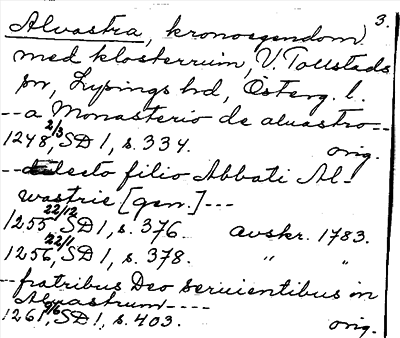 3.
Alvastra, kronoegendom
med klosterruin, V. Tollstads
sn, Lysings hd, Österg. l.
--a Monasterio de aluastro--
1248 2/3, SD 1, s. 334. orig.
--dilecto filio Abbati Al-
wastrie [gen.]---
1255 22/12, SD 1, s. 376. avskr. 1783.
1256 22/1, SD 1, s. 378. " "
--fratribus Deo seruientibus in
Aluastrum----
1261 9/6, SD 1, s. 403. orig.